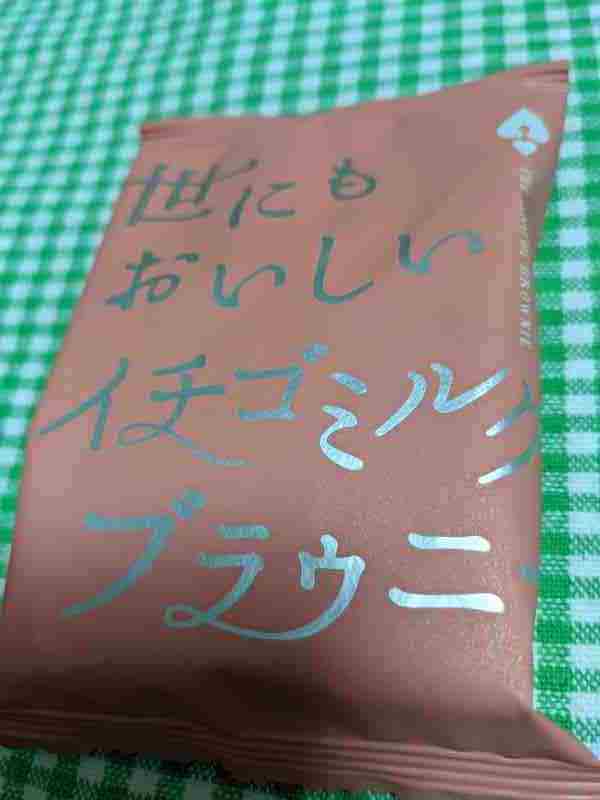 世にも
おいしい
イチゴミルク
ブラウニー
BROWNIE